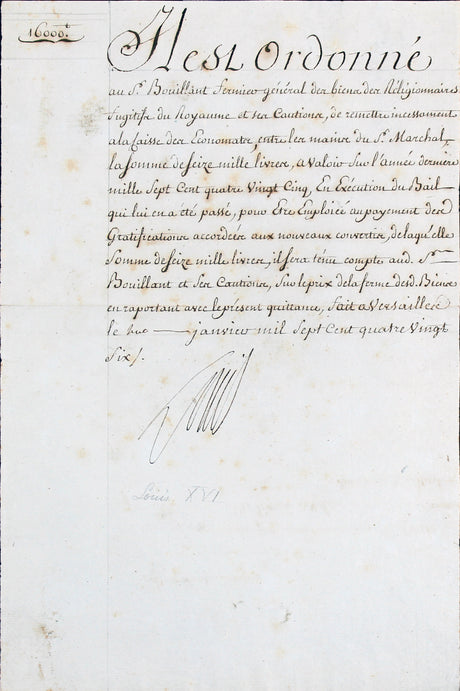 16000.ᵗ
Il est ordonné
au Sʳ. Bouillant fermier général des biens des Réligionnaires
fugitifs du Royaume et ses Cautions, de remettre incessament
a la Caisse des Economats, entre les mains du Sʳ. Marchal,
la somme de seize mille livres, a valoir sur l'année derniere
mille Sept Cent quatre Vingt Cinq, En Exécution du Bail
qui lui en a été passé, pour Etre Emploiée au payement des
Gratifications accordées aux nouveaux convertis, de laquelle
Somme de seize mille livres, il sera tenu compte aud. Sʳ.
Bouillant et Ses Cautions, Sur le prix de la ferme desd. Biens
en raportant avec le present quittance, fait a Versailles
le janvier mil Sept Cent quatre Vingt
Six /.
Louis
Louis XVI